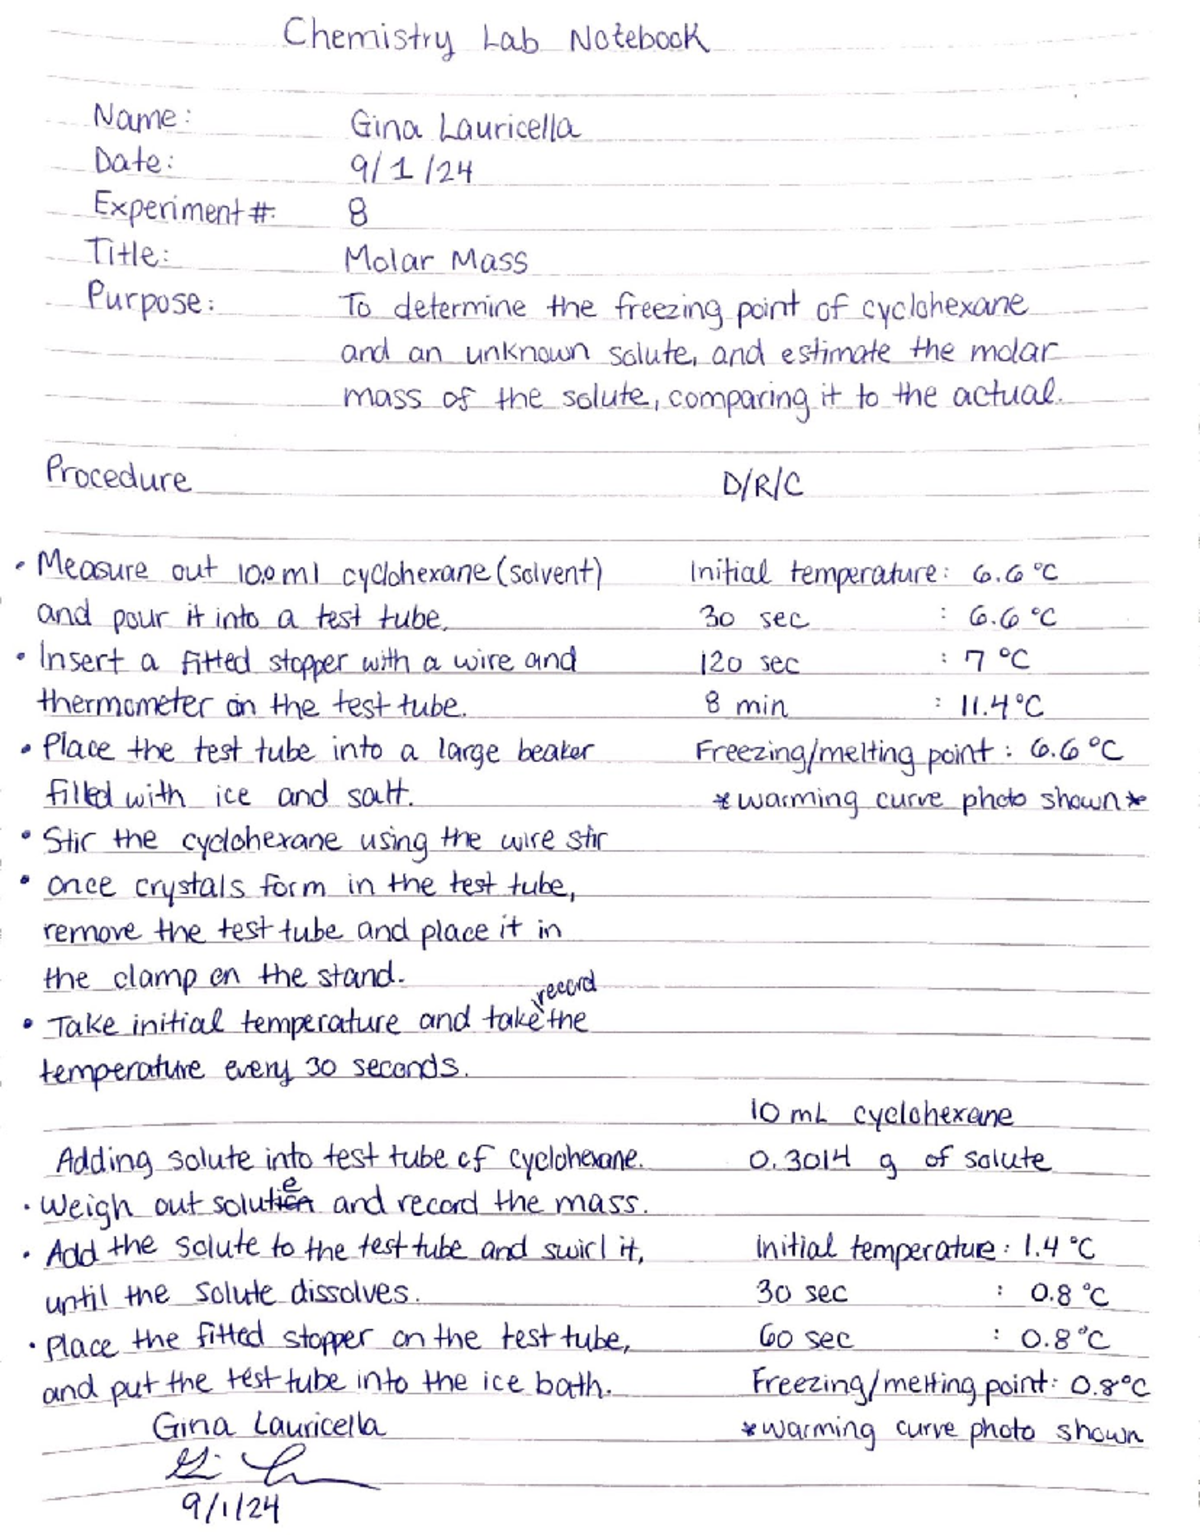 Chemistry Lab Notebook
Name: Gina Lauricella
Date: 9/1/24
Experiment #: 8
Title: Molar Mass
Purpose: To determine the freezing point of cyclohexane
and an unknown solute, and estimate the molar
mass of the solute, comparing it to the actual.
Procedure D/R/C
• Measure out 10.0 ml cyclohexane (solvent) Initial temperature: 6.6 °C
and pour it into a test tube. 30 sec : 6.6 °C
• Insert a fitted stopper with a wire and 120 sec : 7 °C
thermometer on the test tube. 8 min : 11.4 °C
• Place the test tube into a large beaker Freezing/melting point: 6.6 °C
filled with ice and salt. *warming curve photo shown*
• Stir the cyclohexane using the wire stir
• once crystals form in the test tube,
remove the test tube and place it in
the clamp on the stand.
record
• Take initial temperature and take the
temperature every 30 seconds.
10 mL cyclohexane
Adding solute into test tube of cyclohexane. 0.3014 g of solute
• Weigh out solute and record the mass.
• Add the solute to the test tube and swirl it, Initial temperature: 1.4 °C
until the solute dissolves. 30 sec : 0.8 °C
• Place the fitted stopper on the test tube, 60 sec : 0.8 °C
and put the test tube into the ice bath. Freezing/melting point: 0.8 °C
Gina Lauricella *warming curve photo shown
9/1/24